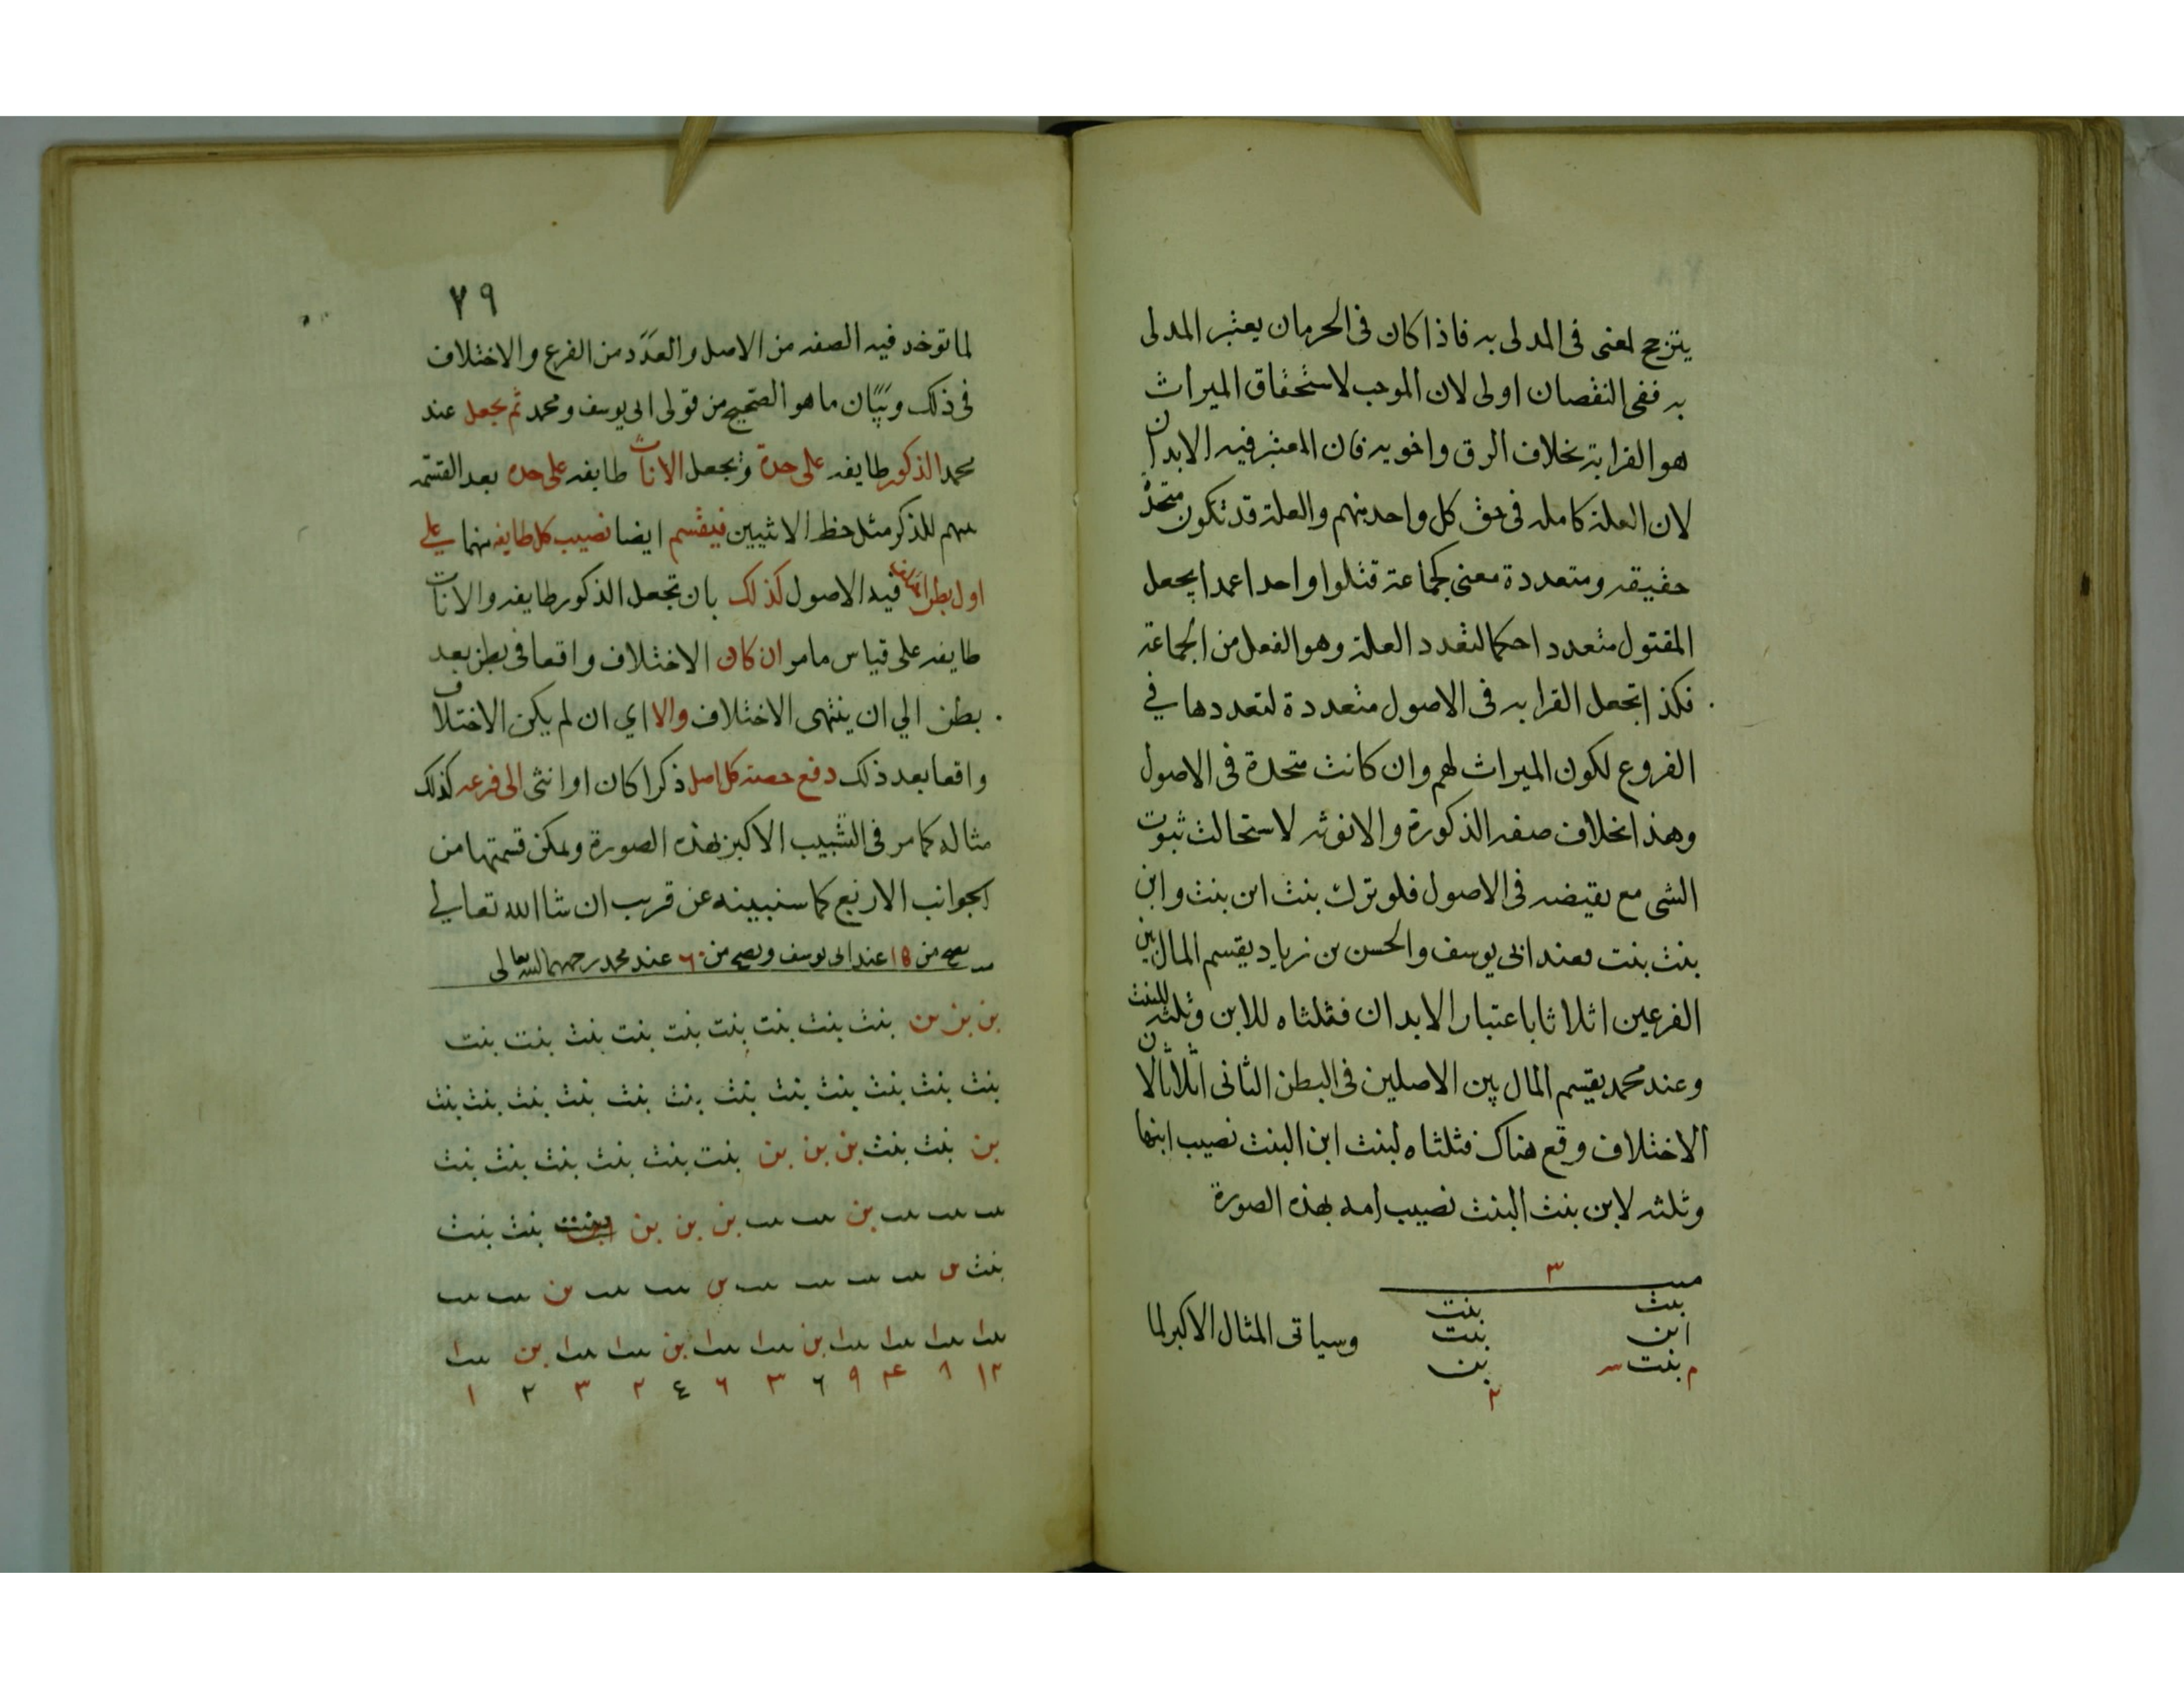 يترجح لمعنى فى المدلى به فاذا كان فى الحرمان يعتبر المدلى
به ففى النقصان اولى لان الموجب لاستحقاق الميراث
هو القرابة بخلاف الرق واخويه فان المعتبر فيه الابدان
لان العلة كامله فى حق كل واحد منهم والعلة قد تكون متحدة
حقيقه ومتعددة معنى كجماعة قتلوا واحدا عمدا يجعل
المقتول متعددا حكما لتعدد العلة وهو الفعل من الجماعة
فكذا تجعل القرابه فى الاصول متعددة لتعددها في
الفروع لكون الميراث لهم وان كانت متحدة فى الاصول
وهذا بخلاف صفه الذكورة والانوثه لاستحالت ثبوت
الشى مع نقيضه فى الاصول فلو ترك بنت ابن بنت وابن
بنت بنت فعند ابى يوسف والحسن بن زياد يقسم المال بين
الفرعين اثلاثا باعتبار الابدان فثلثاه للابن وثلثه للبنت
وعند محمد يقسم المال بين الاصلين فى البطن الثانى اثلاثا لان
الاختلاف وقع هناك فثلثاه لبنت ابن البنت نصيب ابيها
وثلثه لابن بنت البنت نصيب امه بهذه الصورة
٣
بنت بنت
ابن بنت
بنت بن
٢
وسياتى المثال الاكبر لما
٧٩
لما توخد فيه الصفه من الاصل والعدد من الفرع والاختلاف
فى ذلك وبيان ما هو الصحيح من قولى ابى يوسف ومحمد ثم يجعل عند
محمد الذكور طايفه على حدة ويجعل الاناث طايفه على حده بعد القسمه
بينهم للذكر مثل حظ الانثيين فيقسم ايضا نصيب كل طايفه منهما على
اول بطن فيه الاصول كذلك بان تجعل الذكور طايفه والاناث
طايفه على قياس ما مر ان كان الاختلاف واقعا فى بطن بعد
بطن الي ان ينتهى الاختلاف والا اي ان لم يكن الاختلاف
واقعا بعد ذلك دفع حصة كل اصل ذكرا كان او انثى الى فرعه كذلك
مثاله كما مر فى التشبيب الاكبر بهذه الصورة ويمكن قسمتها من
الجوانب الاربع كما سنبينه عن قريب ان شا الله تعالي
تصح من ١٥ عند ابى يوسف وتصح من ٦٠ عند محمد رحمهما الله تعالى
بن بن بن بنت بنت بنت بنت بنت بنت بنت بنت بنت
بنت بنت بنت بنت بنت بنت بنت بنت بنت بنت بنت بنت
بن بنت بنت بن بن بن بنت بنت بنت بنت بنت بنت
بنت بنت بنت بن بنت بنت بن بن بن بنت بنت
بنت بن بنت بنت بنت بنت بن بنت بنت بن بنت بنت
بنت بنت بنت بنت بن بنت بنت بن بنت بنت بن بنت
١٢ ٨ ٤ ٩ ٦ ٣ ٦ ٤ ٢ ٣ ٢ ١